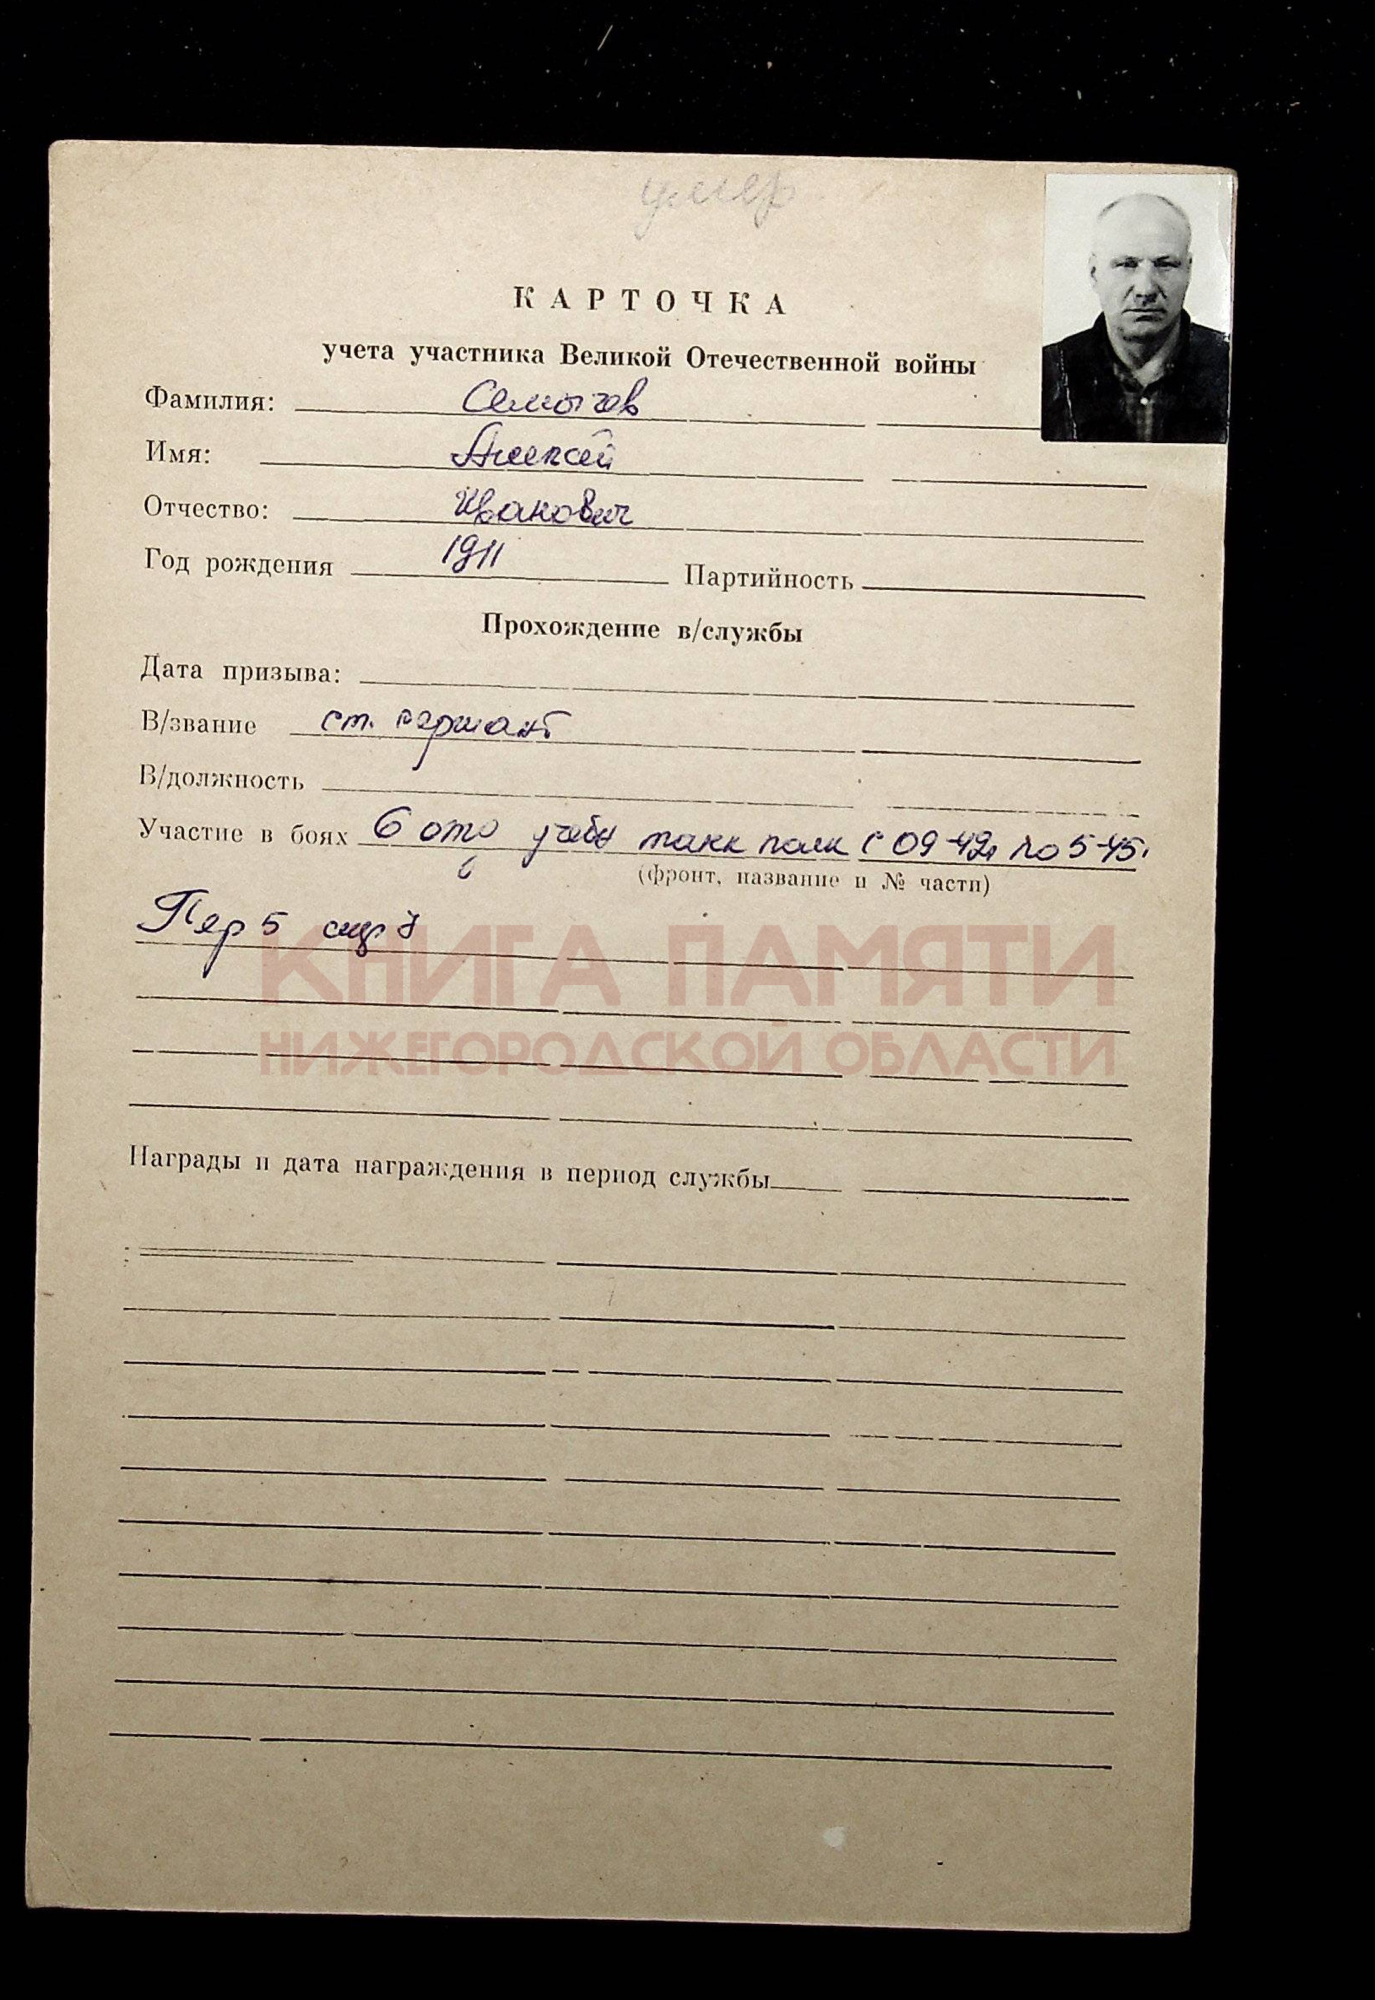 умер
КАРТОЧКА
учета участника Великой Отечественной войны
Фамилия: Семычев
Имя: Алексей
Отчество: Иванович
Год рождения 1911 Партийность
Прохождение в/службы
Дата призыва:
В/звание ст. сержант
В/должность
Участие в боях 6 отд учебн танк полк с 09-42г по 5-45г
(фронт, название и № части)
Пер 5
КНИГА ПАМЯТИ
НИЖЕГОРОДСКОЙ ОБЛАСТИ
Награды и дата награждения в период службы